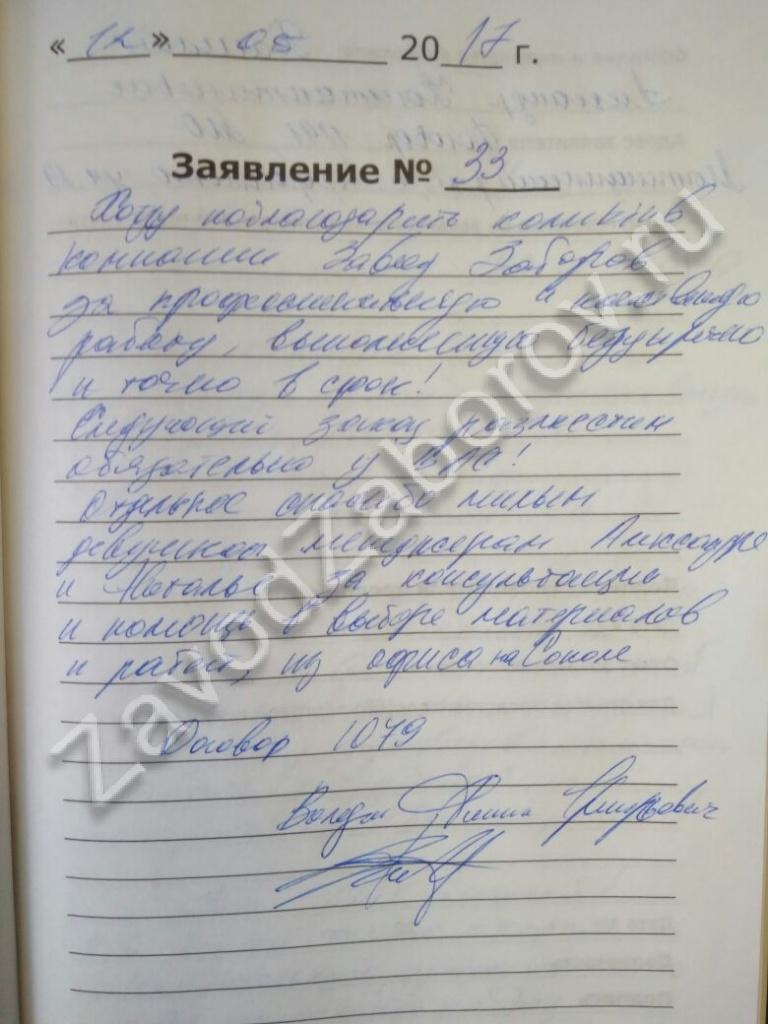 « 12 » 05 2017 г.
Заявление № 33
Хочу поблагодарить коллектив
компании Завод Заборов
за профессиональную и качественную
работу, выполненную безупречно
и точно в срок!
Следующий заказ разместим
обязательно у Вас!
Отдельное спасибо милым
девушкам менеджерам Александре
и Наталье за консультацию
и помощь в выборе материалов
и работ, из офиса на Соколе
Договор 1079
ZavodZaborov.ru